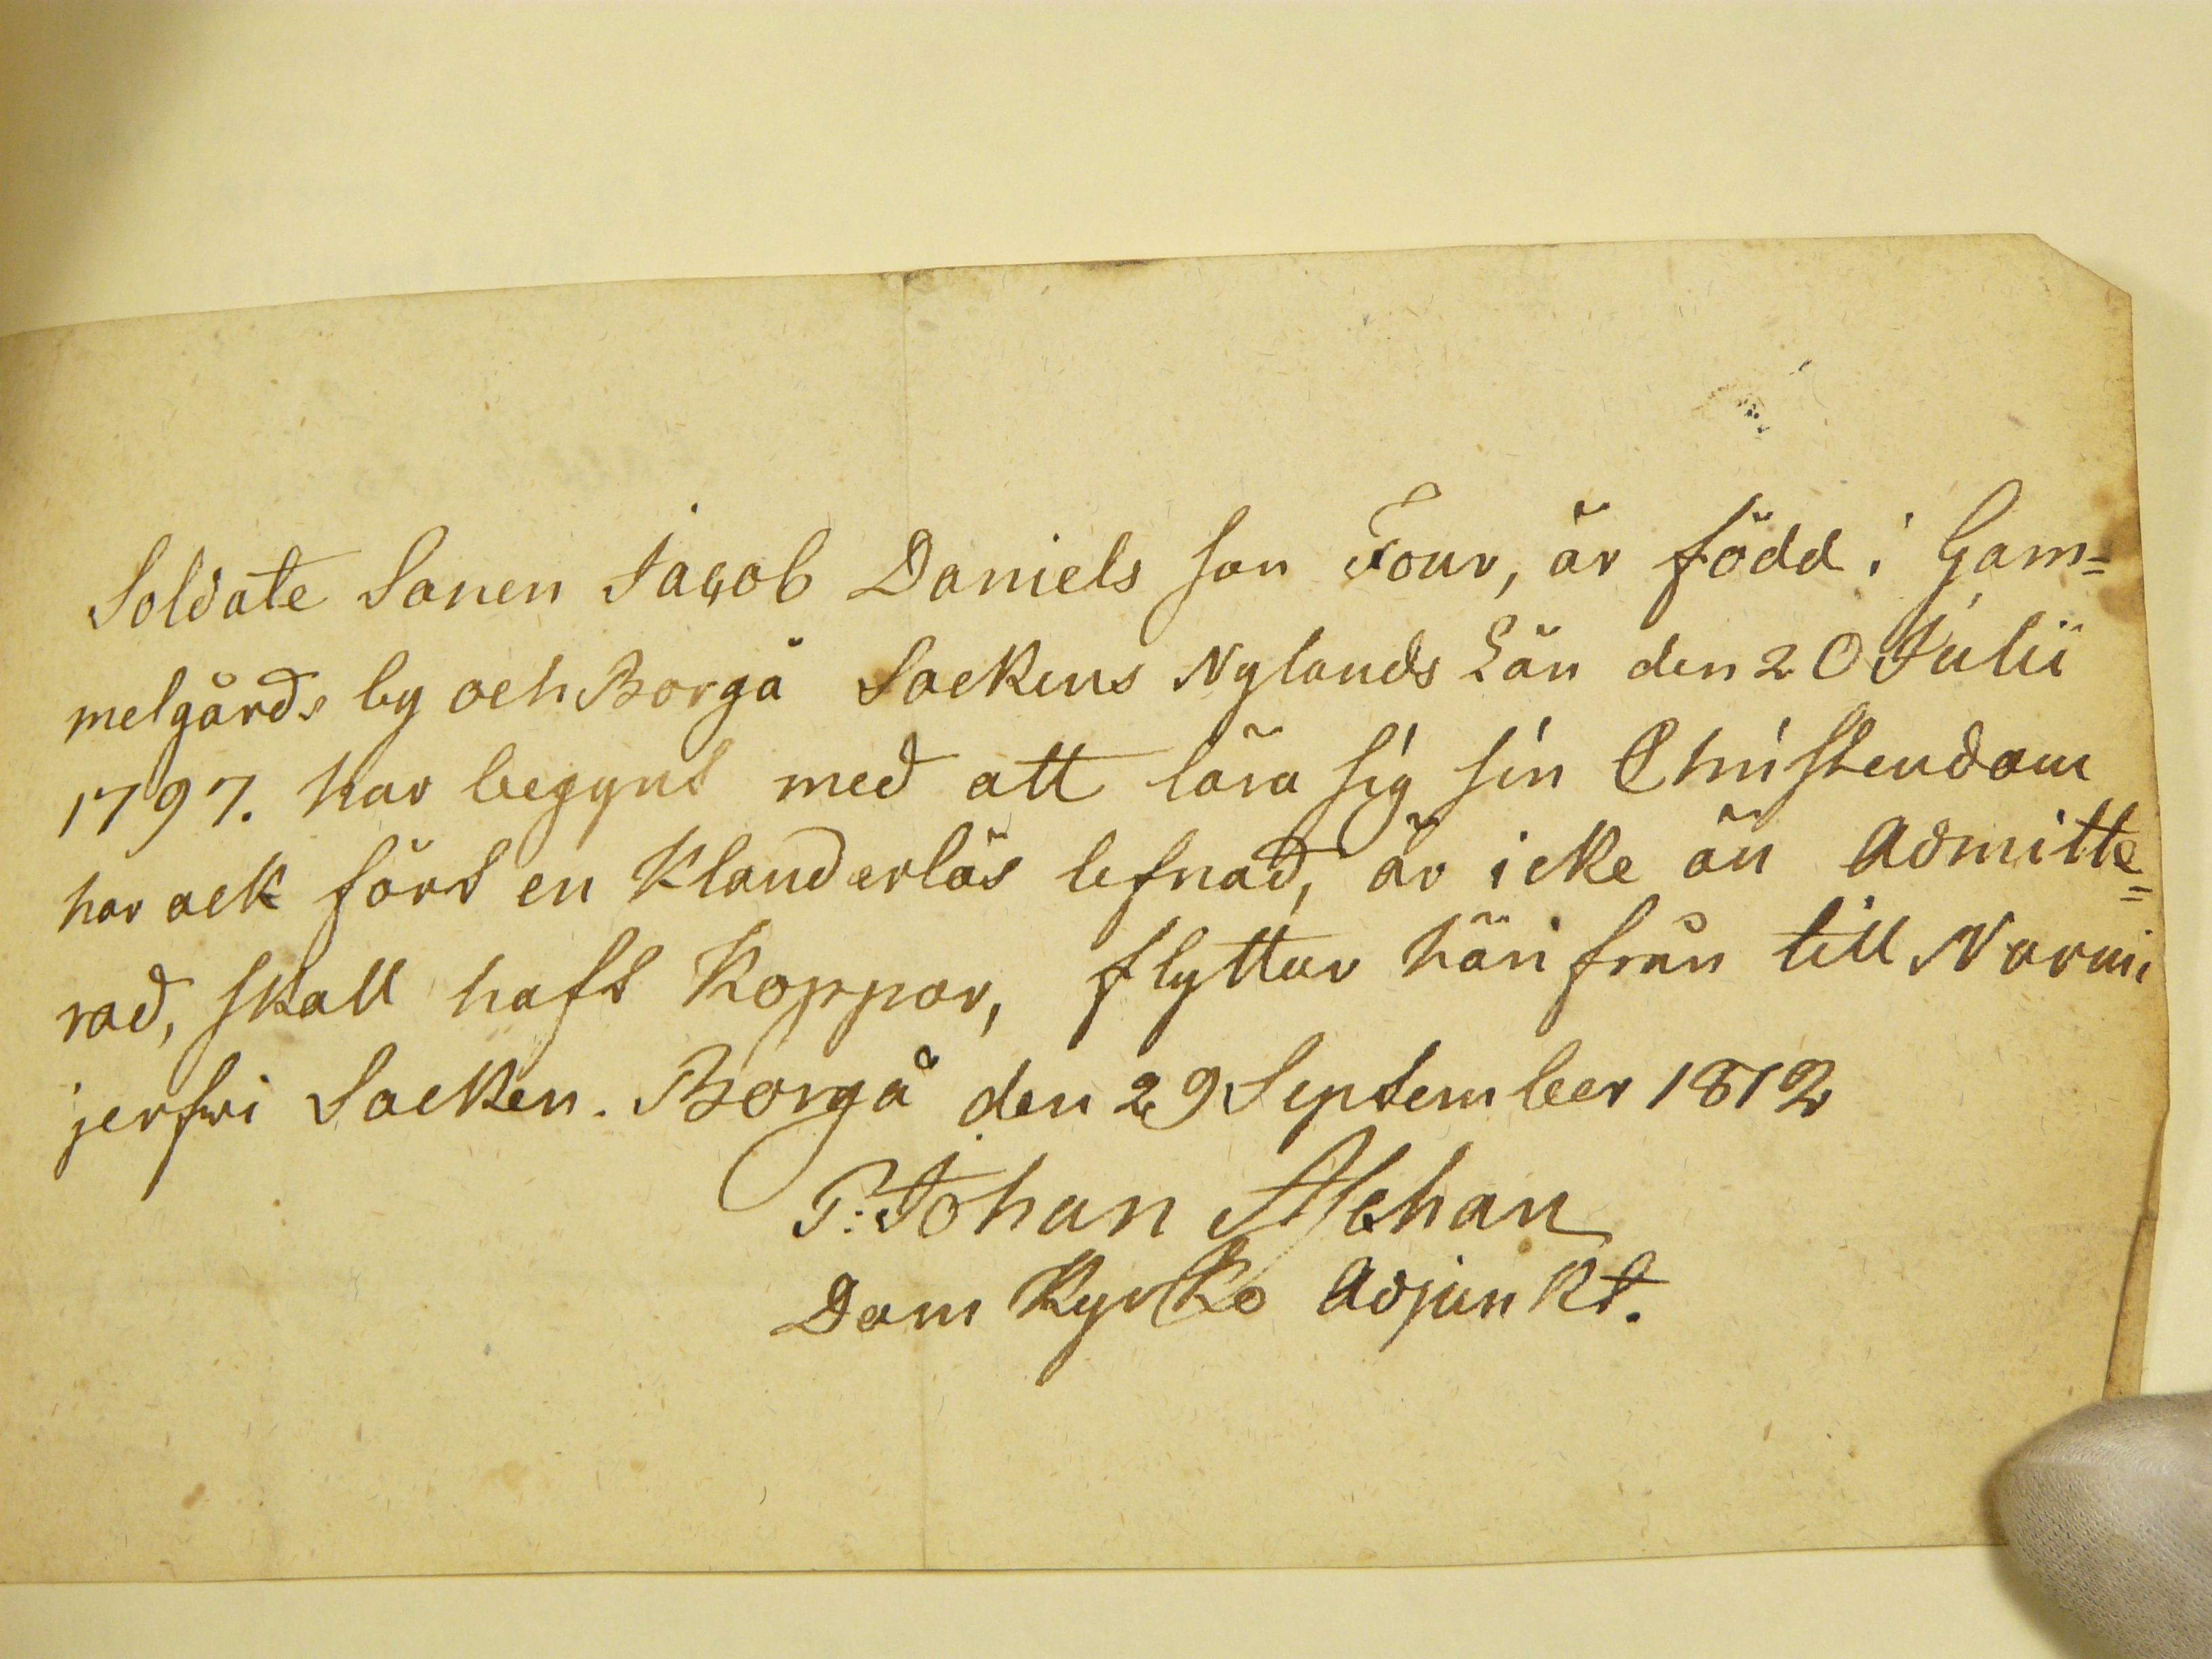 Soldate Sonen Jacob Daniels son Four, är född i Gam=
melgårds by och Borgå Sockens Nylands Län den 20 Julii
1797. har begynt med att lära sig sin Christendom
har ock fört en Klanderlös lefnad, är icke än Admitte=
rad, skall haft Koppor, flyttar härifrån till Nurmi
jerfwi Socken. Borgå den 29 September 1812
P: Johan Alehan
Dom Kyrko Adjunkt.